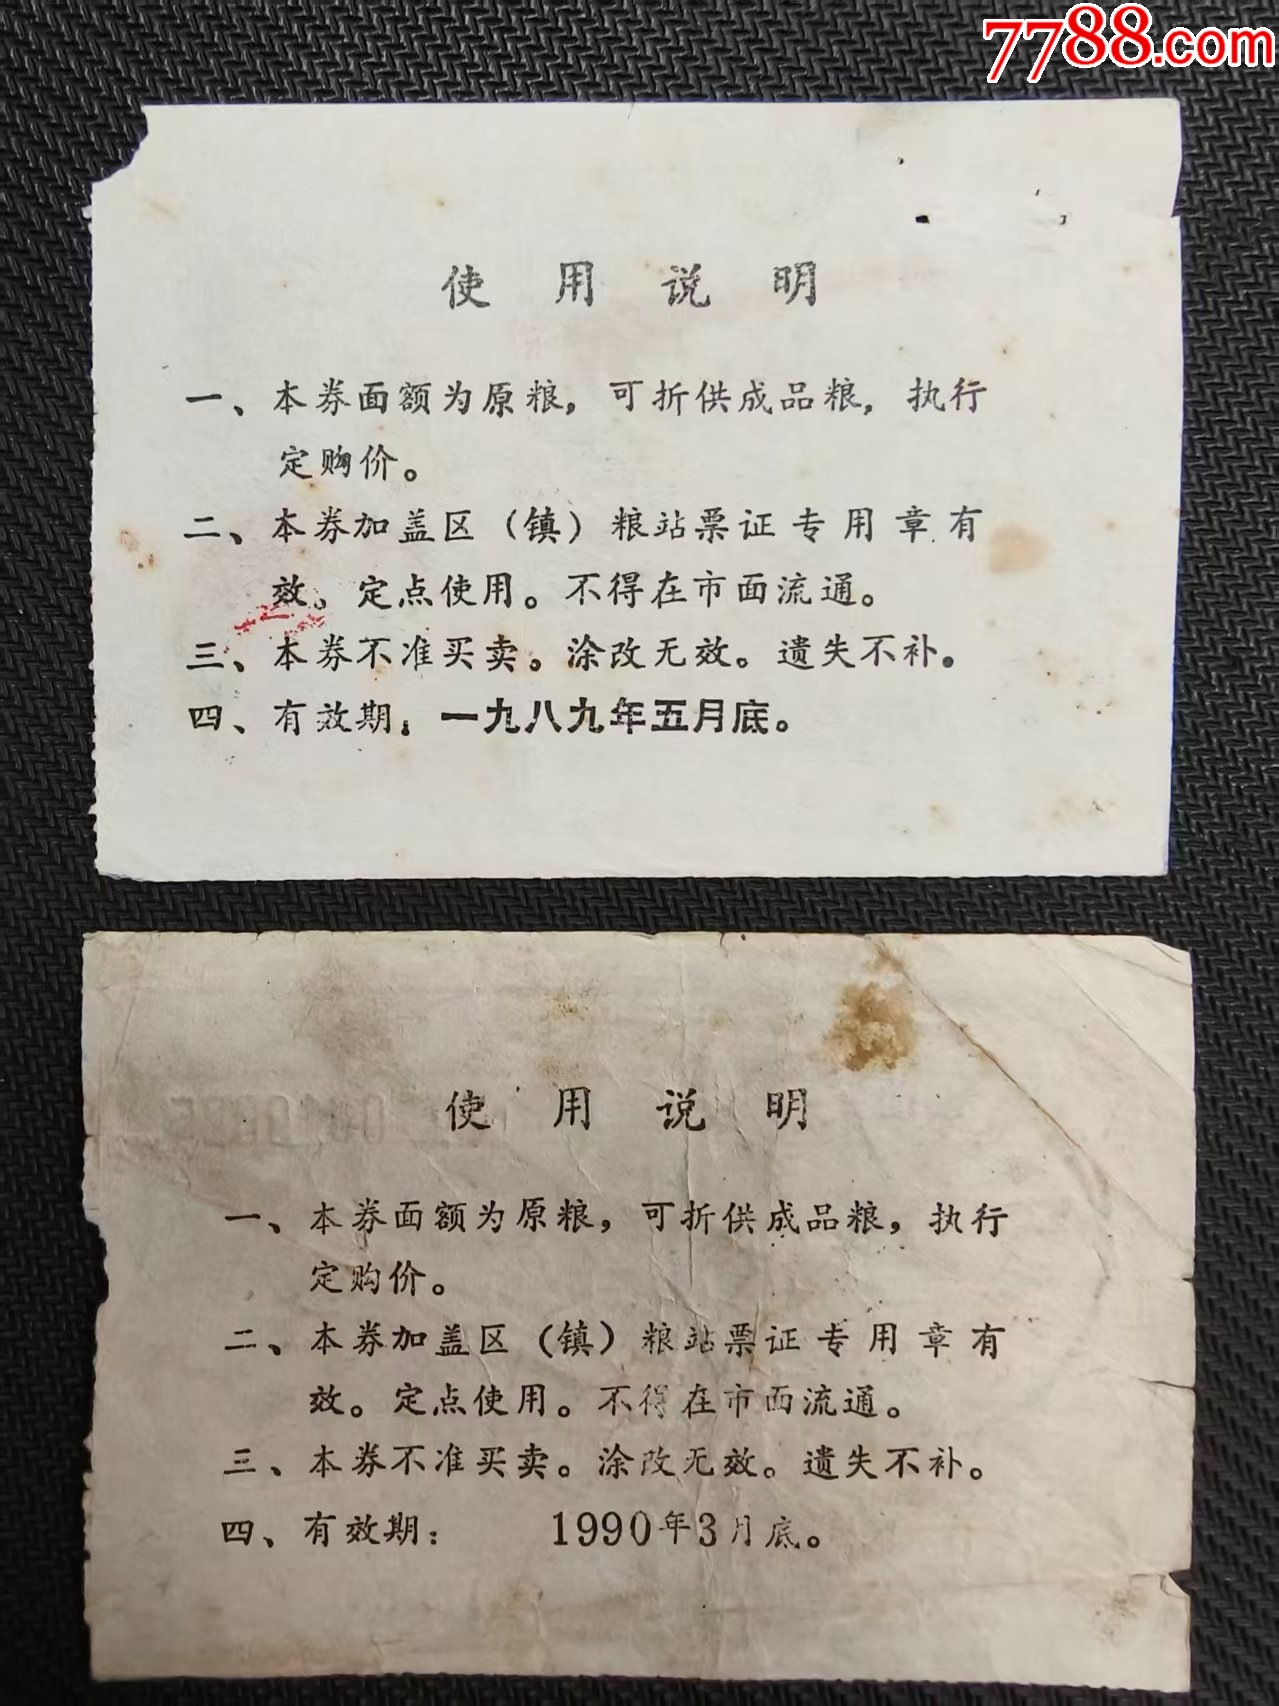 7788.com
使用说明
一、本券面额为原粮，可折供成品粮，执行
定购价。
二、本券加盖区（镇）粮站票证专用章有
效。定点使用。不得在市面流通。
三、本券不准买卖。涂改无效。遗失不补。
四、有效期：一九八九年五月底。
使用说明
一、本券面额为原粮，可折供成品粮，执行
定购价。
二、本券加盖区（镇）粮站票证专用章有
效。定点使用。不得在市面流通。
三、本券不准买卖。涂改无效。遗失不补。
四、有效期：1990年3月底。